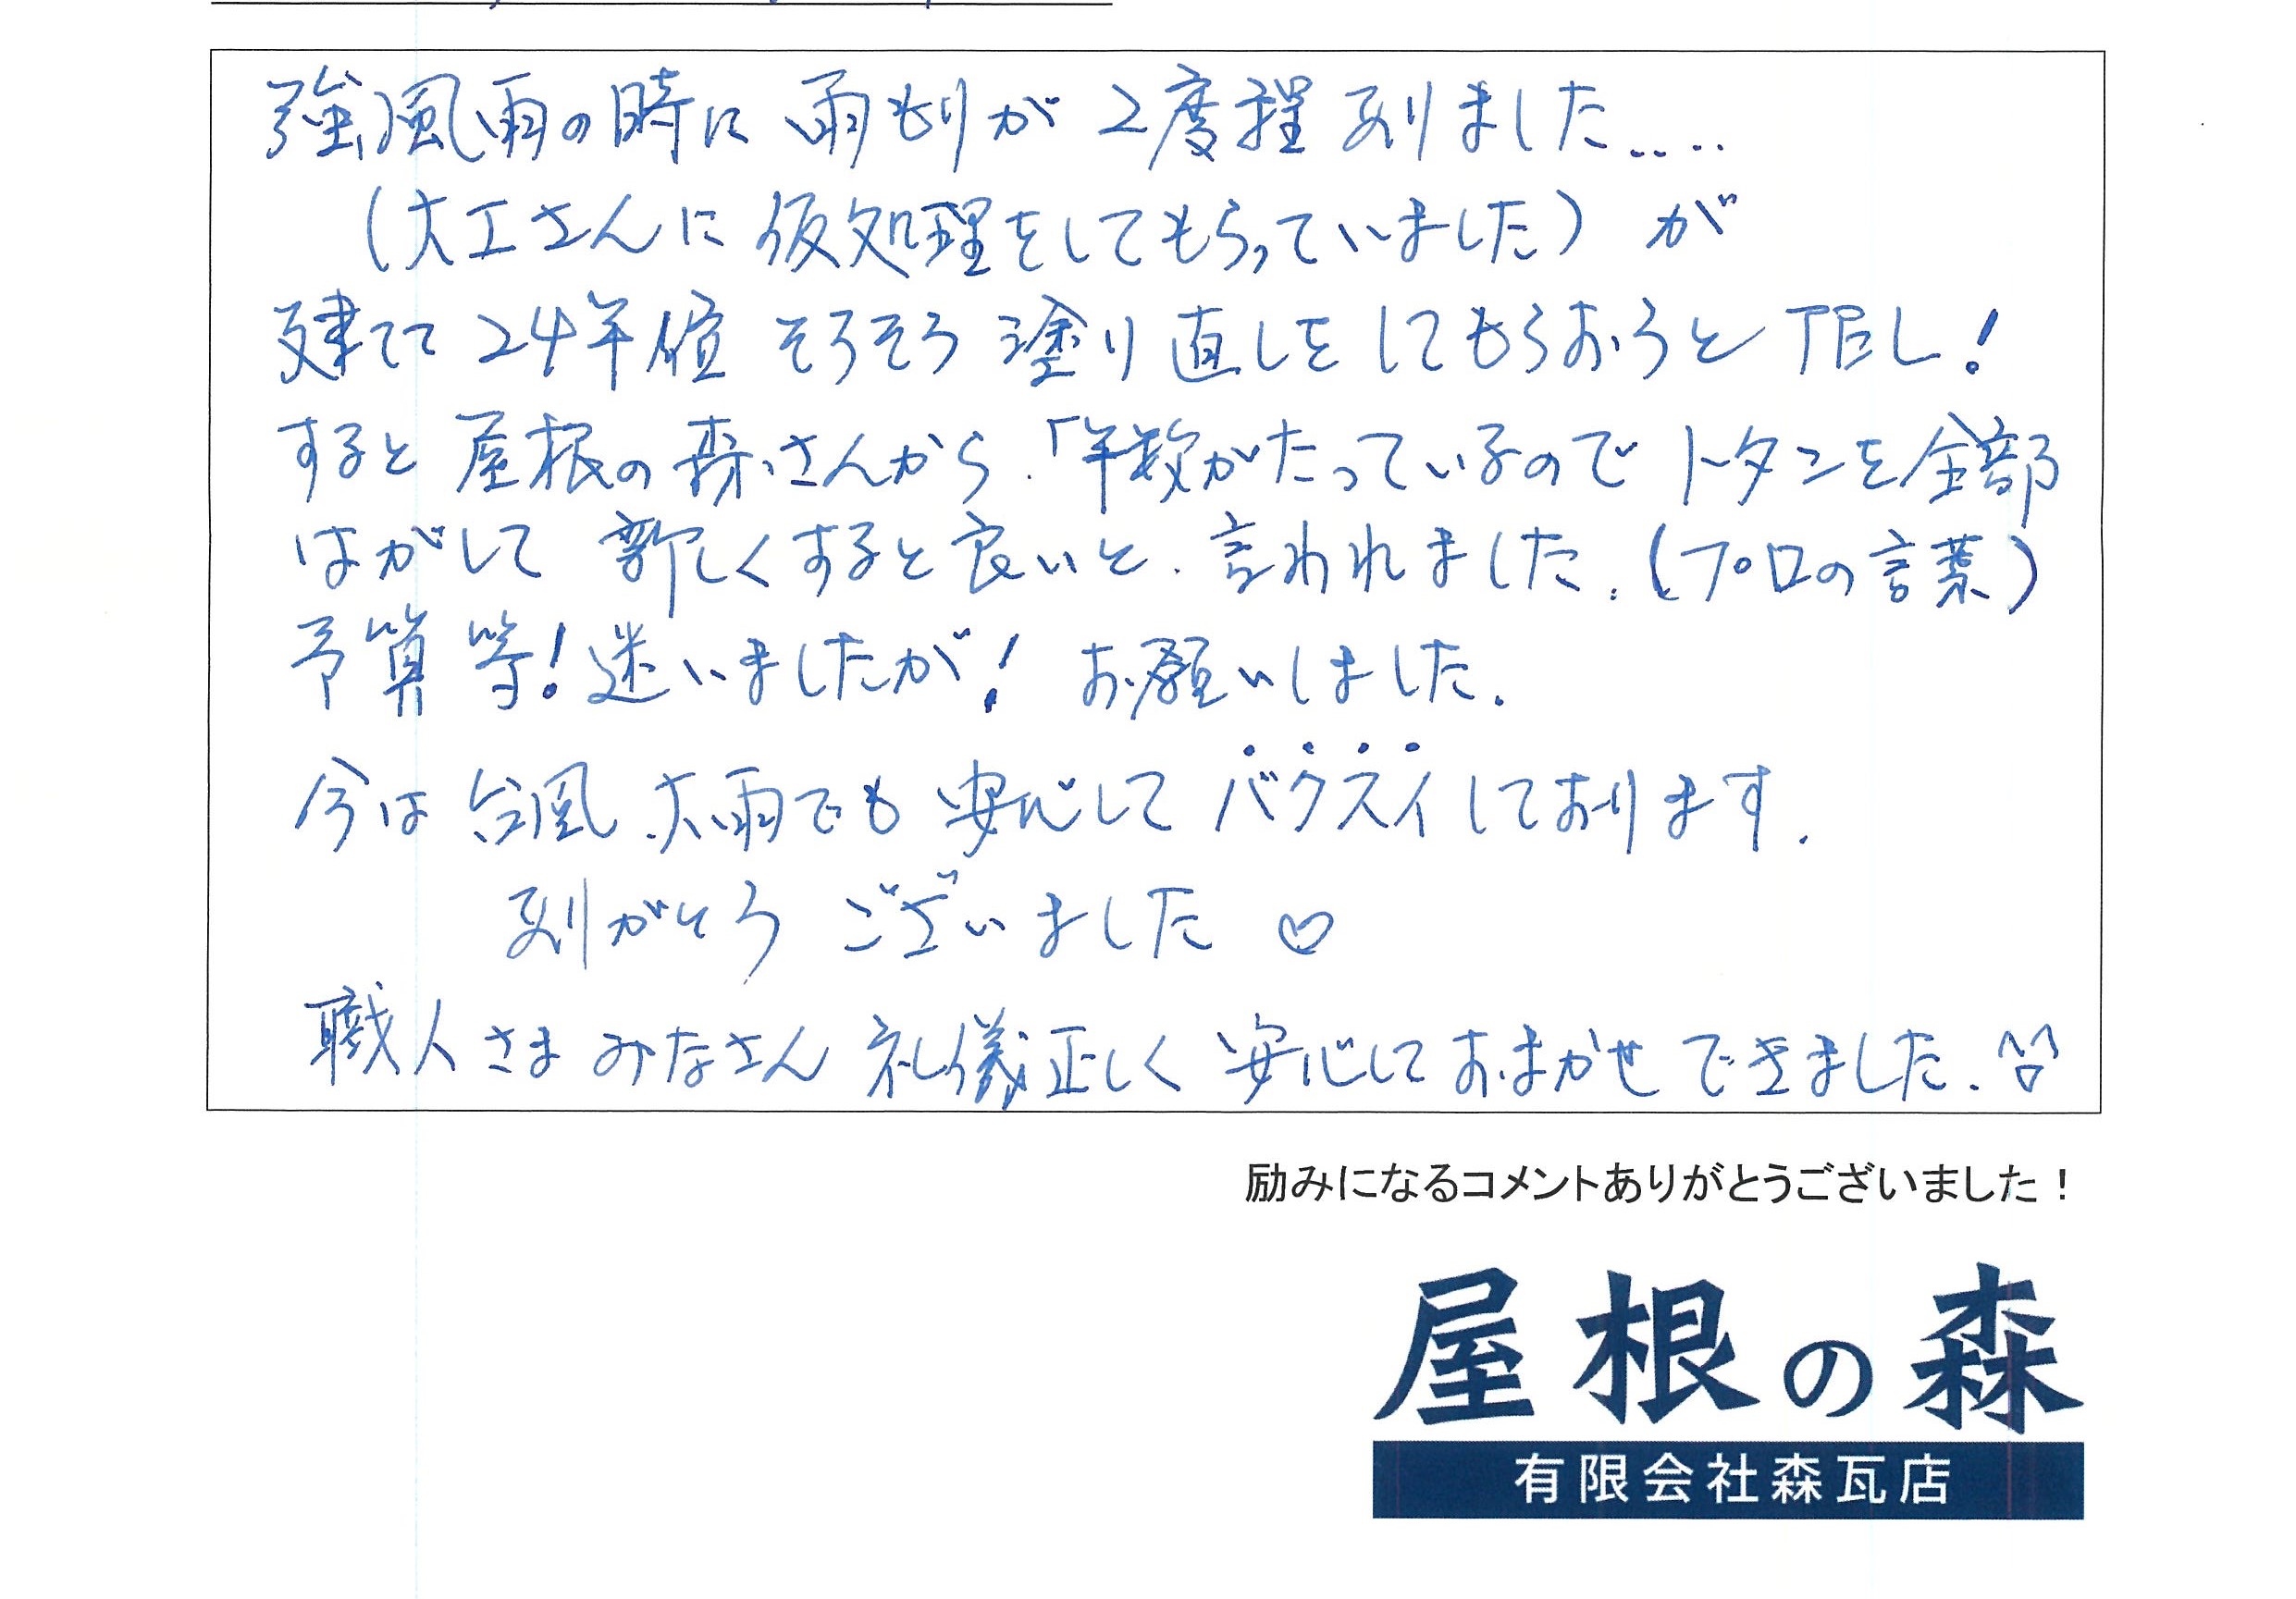 強風雨の時に 雨もりが 2度程 ありました....
(大工さんに 仮処理をしてもらっていました) が
建てて 24年位 そろそろ 塗り直しを してもらおうと TEL!
すると 屋根の森さんから.「年数がたっているので トタンを全部
はがして 新しくすると良いと. 言われました.(プロの言葉)
予算等! 迷いましたが! お願いしました.
今は 台風.大雨でも 安心して バクスイしております.
ありがとう ございました ♡
職人さま みなさん 礼儀正しく 安心して おまかせ できました.
励みになるコメントありがとうございました！
屋根の森
有限会社森瓦店